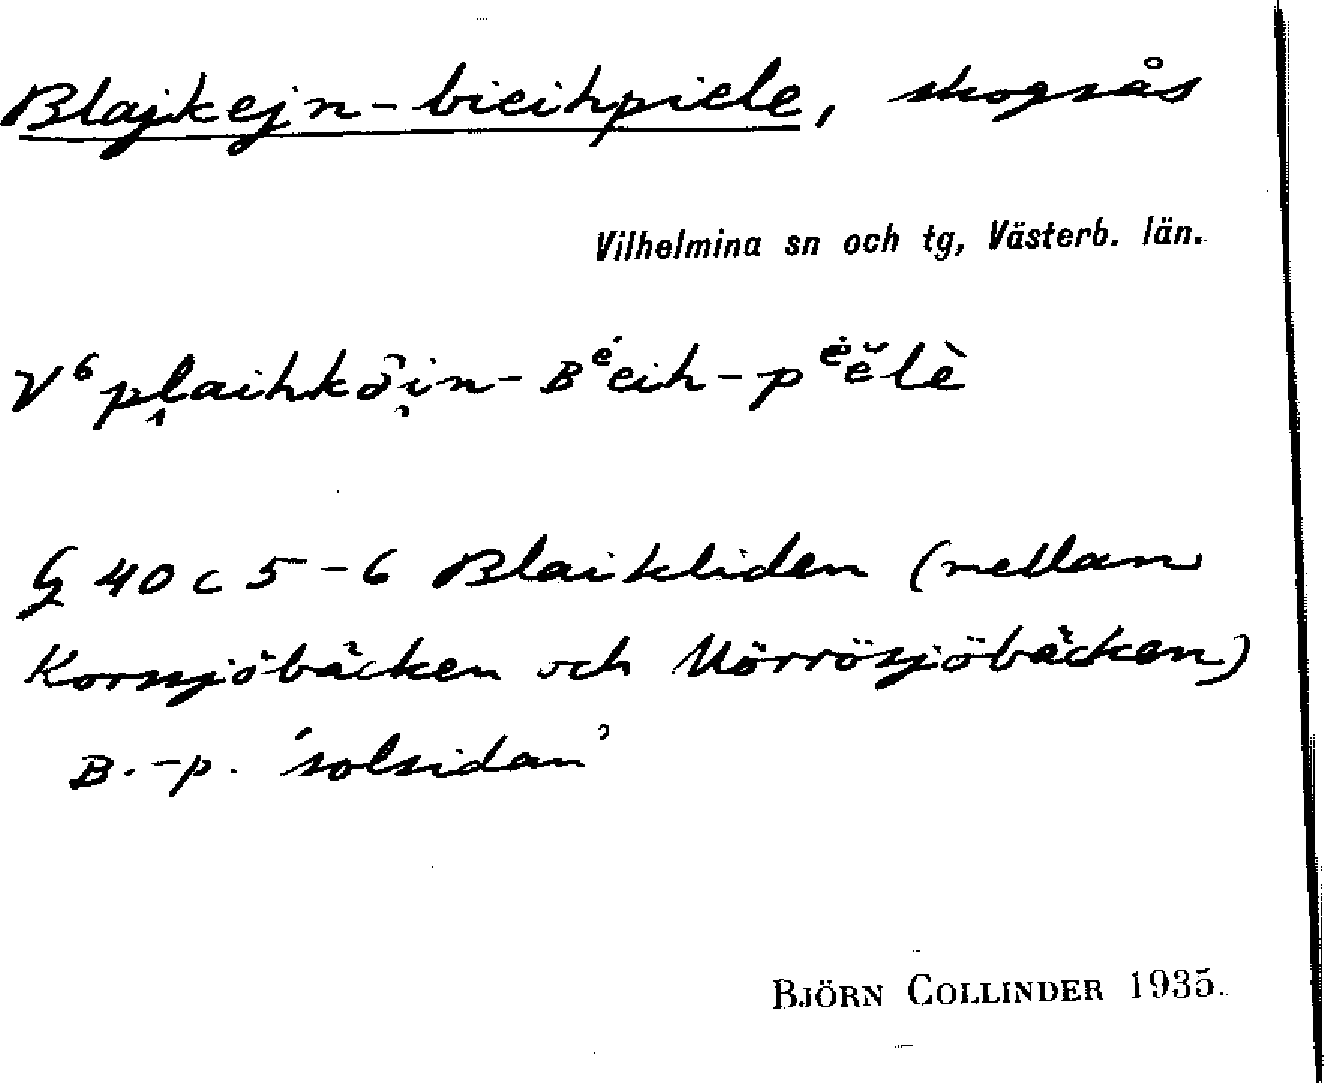 Blajkejn-bieihpiele, skogsås
Vilhelmina sn och tg, Västerb. län.
V⁶ pl̥aihkɔ̄i̥n-ʙᵉ́eih-pᵉ̇ĕlè
G 40 c 5-6 Blaikliden (mellan
Korssjöbäcken och Mörrösjöbäcken)
B.-p. 'solsidan'
BJÖRN COLLINDER 1935.